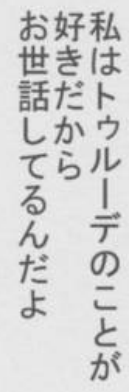 私はトゥルーデのことが
好きだから
お世話してるんだよ